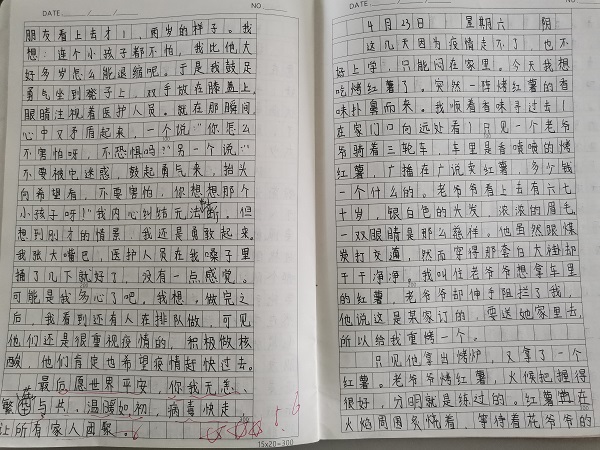 DATE / / NO
朋友看上去才1、两岁的样子。我
想：连个小孩子都不怕，我比他大
好多岁怎么能退缩呢。于是我鼓足
勇气坐到凳子上，双手放在膝盖上，
眼睛注视着医护人员。就在那瞬间，
心中又矛盾起来，一个说：“你怎么
不害怕呀，不恐惧吗？”另一个说：“
不要被它迷惑，鼓起勇气来，抬头
向希望看，不要害怕，你想想那个
小孩子呀！”我内心纠结无法断。但
想到刚才的情景，我还是勇敢起来。
我张大嘴巴，医护人员在我嗓子里
捅了几下就好了，没有一点感觉。
可能是我多心了吧，我想，做完之
后，我看到还有人在排队做，可见
他们还是很重视疫情的，积极做核
酸，他们肯定也希望疫情赶快过去。
最后愿世界平安，你我无恙，
繁与共，温暖如初，病毒快走，
让所有家人团聚。
5.6
15×20=300
DATE / / NO
4月23日 星期六 阴
这几天因为疫情走不了，也不
好上学，只能闷在家里。今天我想
吃烤红薯了。突然一阵烤红薯的香
味扑鼻而来。我顺着香味寻过去，
在家们口向远处看，只见一个老爷
爷骑着三轮车，车里是香喷喷的烤
红薯，广播在广说卖红薯，多少钱
一个什么的。老爷爷看上去有六七
十岁，银白色的头发，浓浓的眉毛，
一双眼睛是那么慈祥。他虽然跟煤
炭打交道，然而穿得那套白大褂却
干干净净。我叫住老爷爷想拿车里
的红薯。老爷爷却伸手阻拦了我，
他说这是某家订的，要送她家里去，
所以给我重烤一个。
只见他拿出烤炉，又拿了一个
红薯。老爷爷烤红薯，火候把握得
很好，分明就是练过的。红薯在
火焰周围烧着，等待着花爷爷的